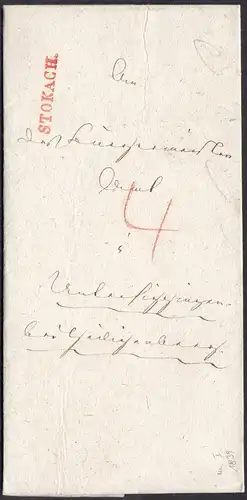 STOKACH.
An
das Bürgermeister
Amt
4
in
Untersiggingen
bei Heiligenberg
1839